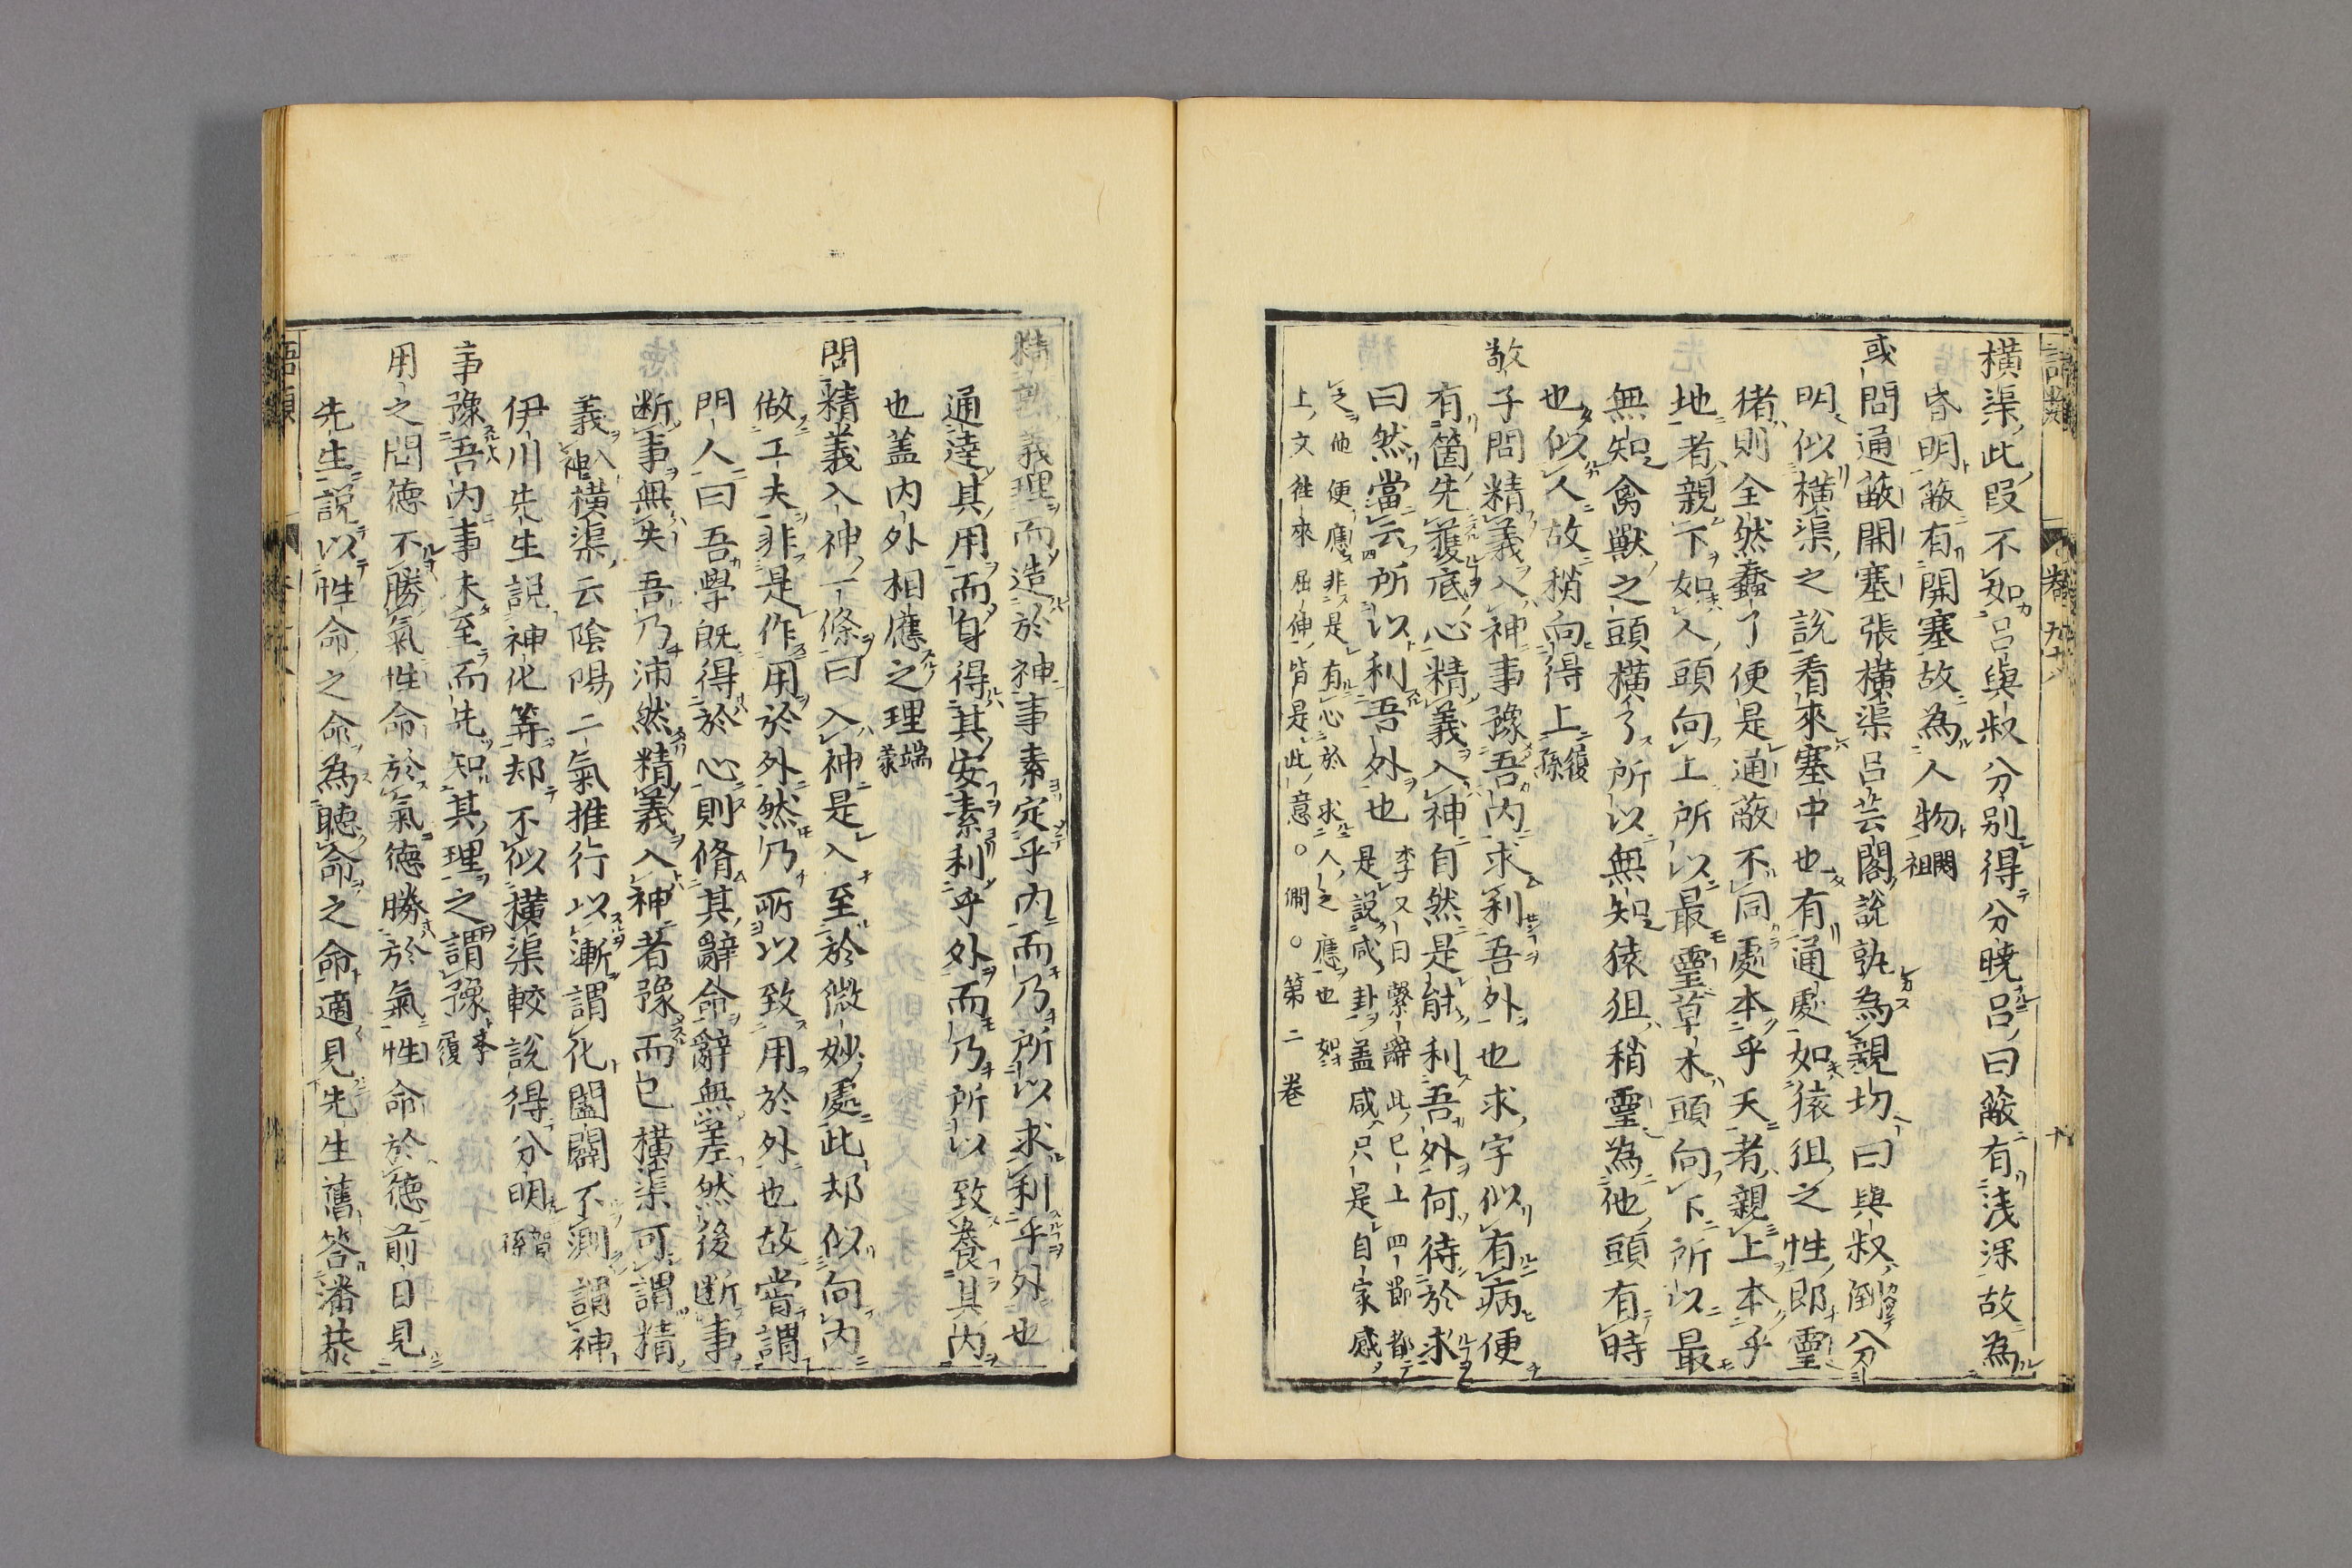 語類 卷九十八 十
橫渠此段不知呂與叔分別得分曉呂曰蔽有淺深故為
昏明蔽有開塞故為人物閎祖
或問通蔽開塞張橫渠呂芸閣說孰為親切曰與叔倒分
明似橫渠之說看來塞中也有通處如猿狙之性即靈
猪則全然蠢了便是通蔽不同處本乎天者親上本乎
地者親下如人頭向上所以最靈草木頭向下所以最
無知禽獸之頭橫了所以無知猿狙稍靈為他頭有時
也似人故稍向得上履孫
敬子問精義入神事豫吾內求利吾外也求字似有病便
有箇先獲底心精義入神自然是能利吾外何待於求
曰然當云所以利吾外也李又曰繫辭此已上四節都是說咸卦蓋咸只是自家感
之他便應非是有心於求人之應也如上文往來屈伸皆是此意。僩。第二卷
精熟義理而造於神事素定乎內而乃所以求利乎外也
通達其用而身得其安素利乎外而乃所以致養其內
也蓋內外相應之理端蒙
問精義入神一條曰入神是入至於微妙處此却似向內
做工夫非是作用於外然乃所以致用於外也故嘗謂
門人曰吾學既得於心則脩其辭命辭無差然後斷事
斷事無失吾乃沛然精義入神者豫而已橫渠可謂精
義入神橫渠云陰陽二氣推行以漸謂化闔闢不測謂神
伊川先生說神化等却不似橫渠較說得分明賀孫
事豫吾內事未至而先知其理之謂豫季履
用之問德不勝氣性命於氣德勝於氣性命於德前日見
先生說以性命之命為聽命之命適見先生舊答潘恭
語類